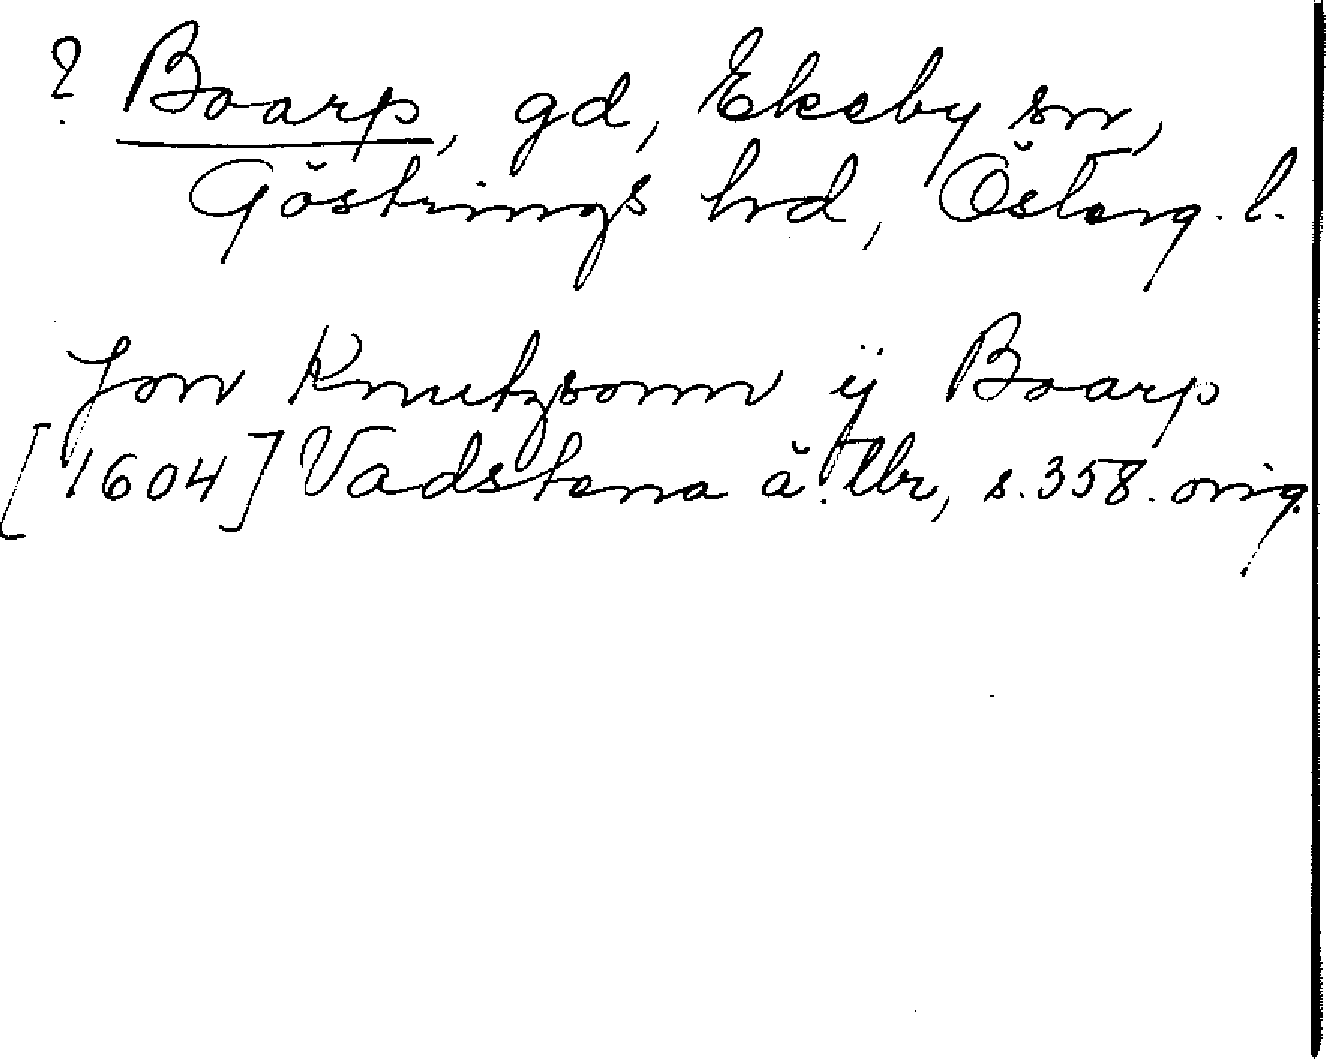 ? Boarp, gd, Ekeby sn,
Göstrings hrd, Österg. l.
Jon Knutzsonn ÿ Boarp
[1604] Vadstena ä. tbr, s. 358. orig.